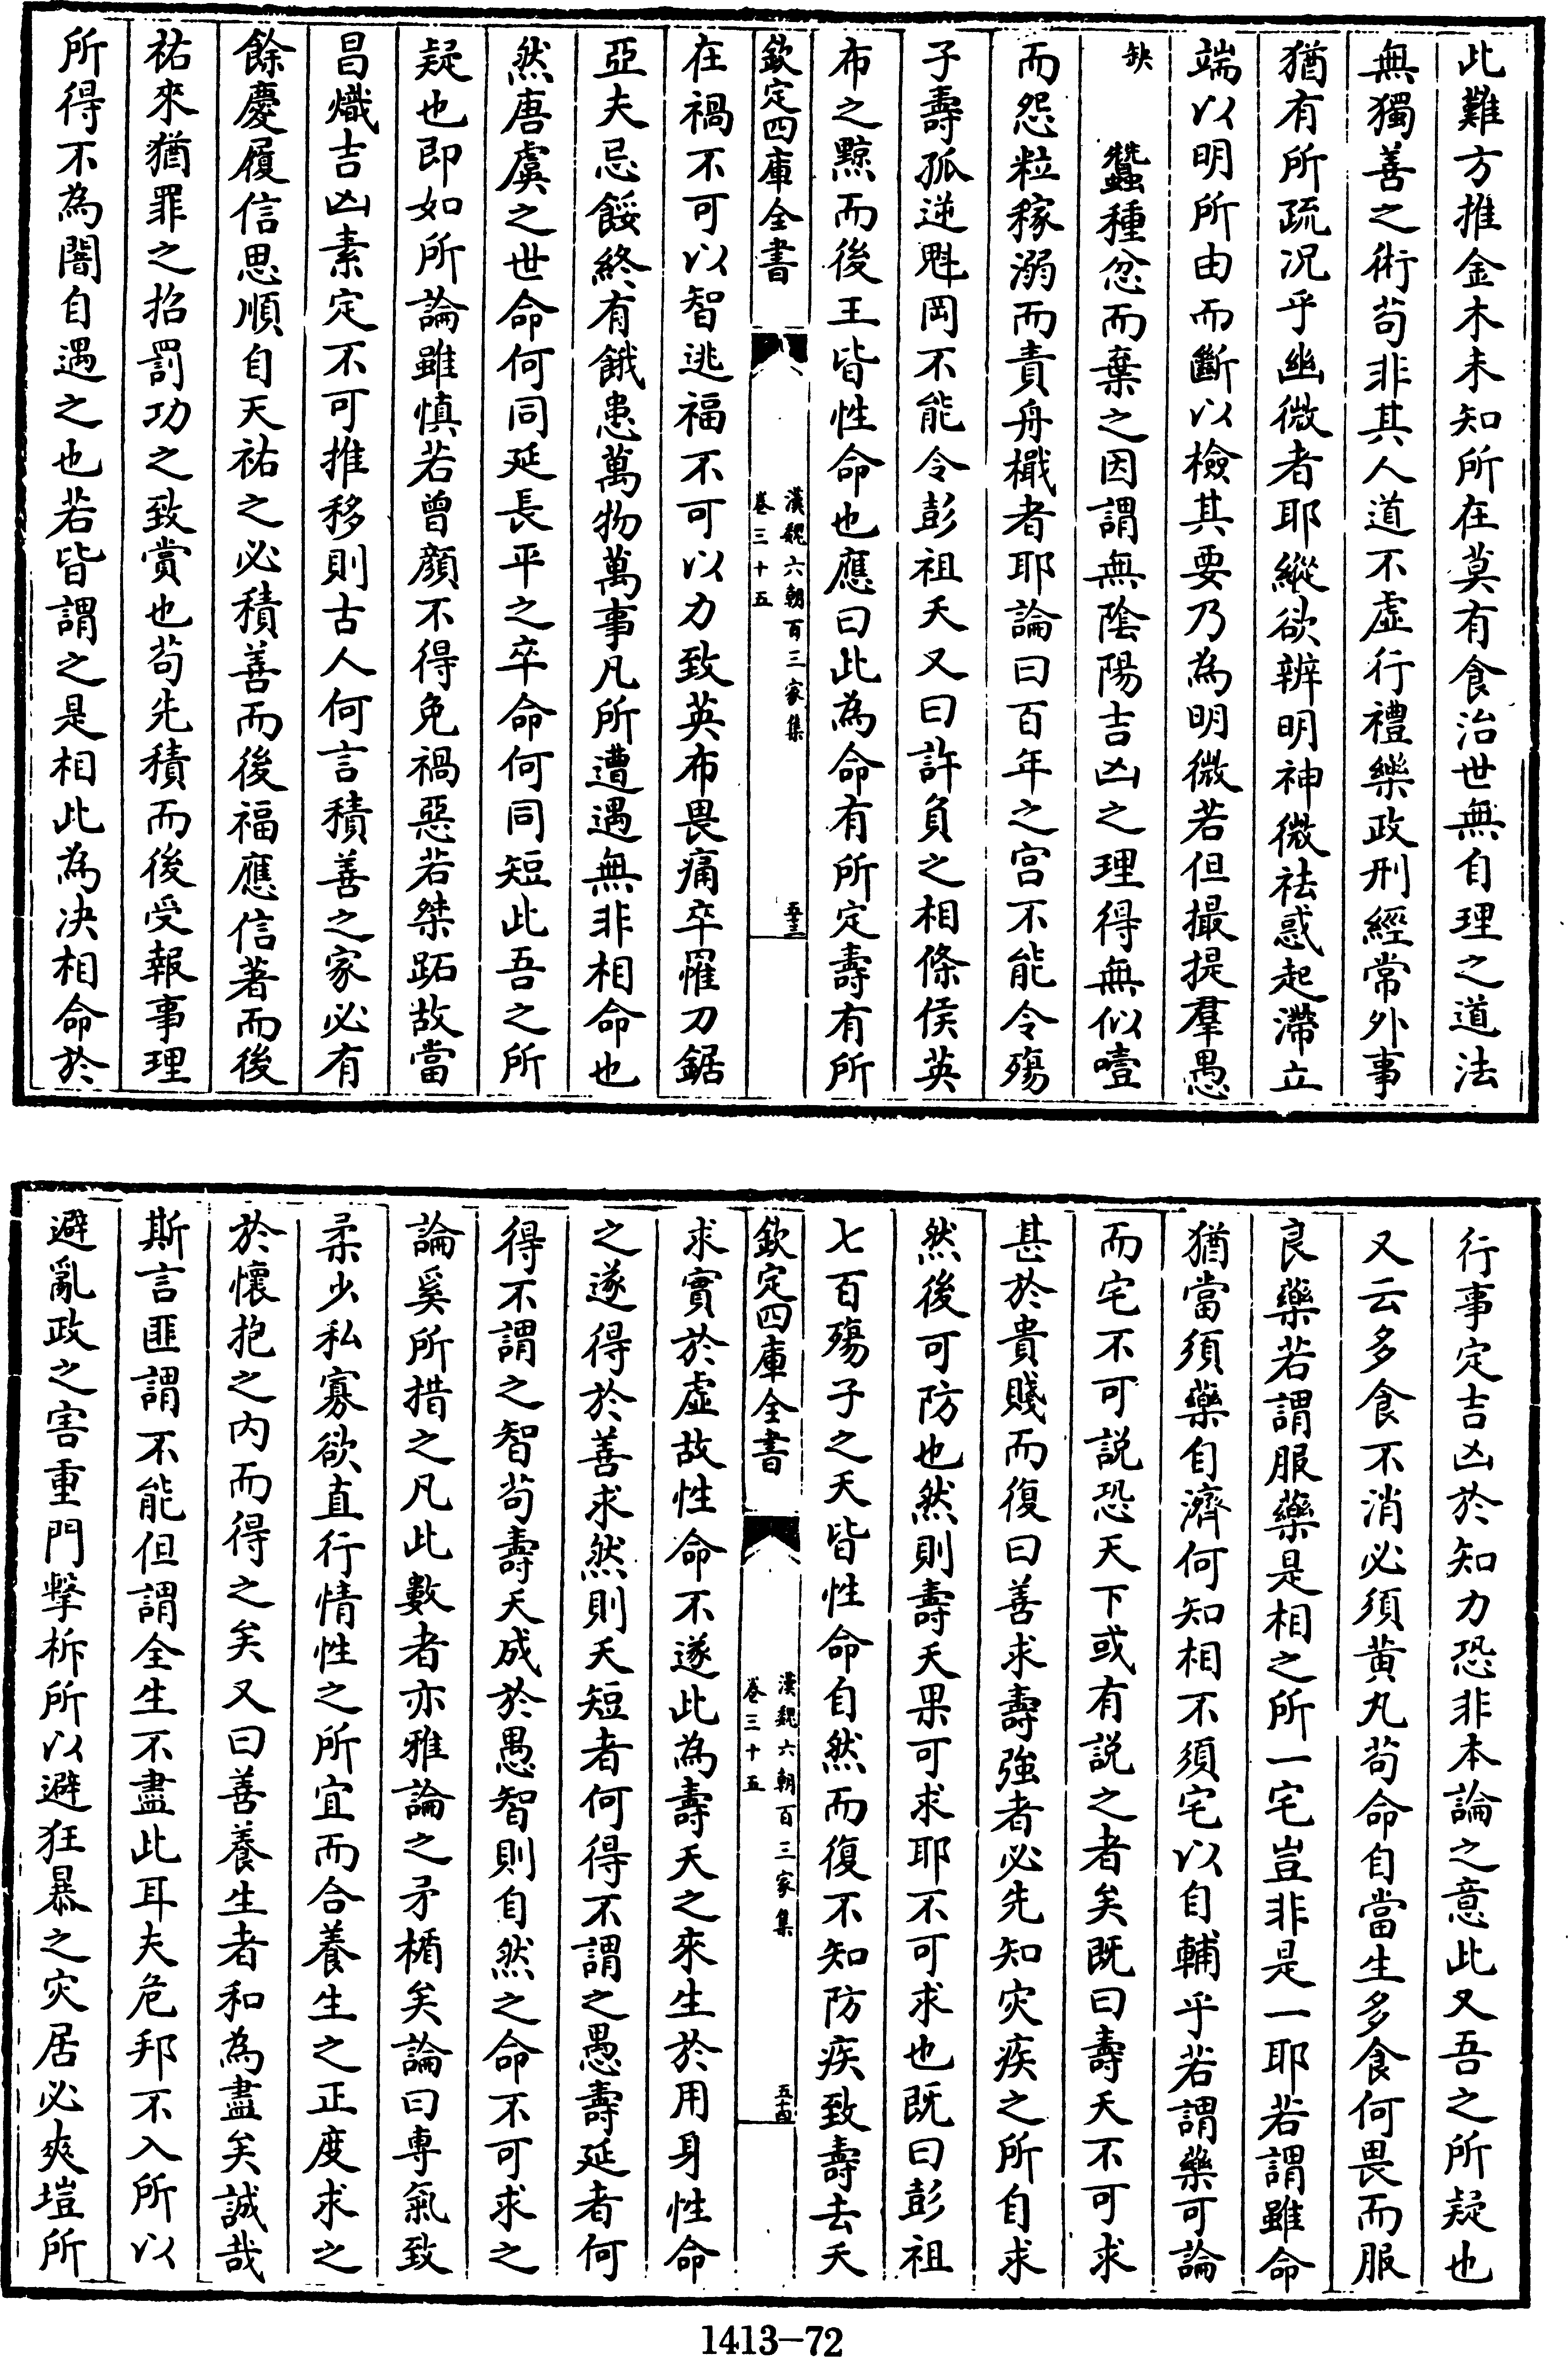 此難方推金木未知所在莫有食治世無自理之道法
無獨善之術苟非其人道不虚行禮樂政刑經常外事
猶有所疏况乎幽微者耶縱欲辨明神微祛惑起滯立
端以明所由而斷以檢其要乃為明微若但撮提羣愚
缺蠶種忿而棄之因謂無陰陽吉凶之理得無似噎
而怨粒稼溺而責舟檝者耶論曰百年之宫不能令殤
子壽孤逆魁岡不能令彭祖夭又曰許負之相條侯英
布之黥而後王皆性命也應曰此為命有所定壽有所
欽定四庫全書
漢魏六朝百三家集
卷三十五
五十三
在禍不可以智逃福不可以力致英布畏痛卒罹刀鋸
亞夫忌餒終有餓患萬物萬事凡所遭遇無非相命也
然唐虞之世命何同延長平之卒命何同短此吾之所
疑也即如所論雖慎若曾顔不得免禍惡若桀跖故當
昌熾吉凶素定不可推移則古人何言積善之家必有
餘慶履信思順自天祐之必積善而後福應信著而後
祐來猶罪之招罰功之致賞也苟先積而後受報事理
所得不為闇自遇之也若皆謂之是相此為决相命於
行事定吉凶於知力恐非本論之意此又吾之所疑也
又云多食不消必須黄丸苟命自當生多食何畏而服
良藥若謂服藥是相之所一宅豈非是一耶若謂雖命
猶當須藥自濟何知相不須宅以自輔乎若謂藥可論
而宅不可説恐天下或有説之者矣既曰壽夭不可求
甚於貴賤而復曰善求壽強者必先知灾疾之所自求
然後可防也然則壽夭果可求耶不可求也既曰彭祖
七百殤子之夭皆性命自然而復不知防疾致壽去夭
欽定四庫全書
漢魏六朝百三家集
卷三十五
五十四
求實於虚故性命不遂此為壽夭之來生於用身性命
之遂得於善求然則夭短者何得不謂之愚壽延者何
得不謂之智苟壽夭成於愚智則自然之命不可求之
論奚所措之凡此數者亦雅論之矛楯矣論曰專氣致
柔少私寡欲直行情性之所宜而合養生之正度求之
於懷抱之内而得之矣又曰善養生者和為盡矣誠哉
斯言匪謂不能但謂全生不盡此耳夫危邦不入所以
避亂政之害重門擊柝所以避狂暴之灾居必爽塏所
1413-72